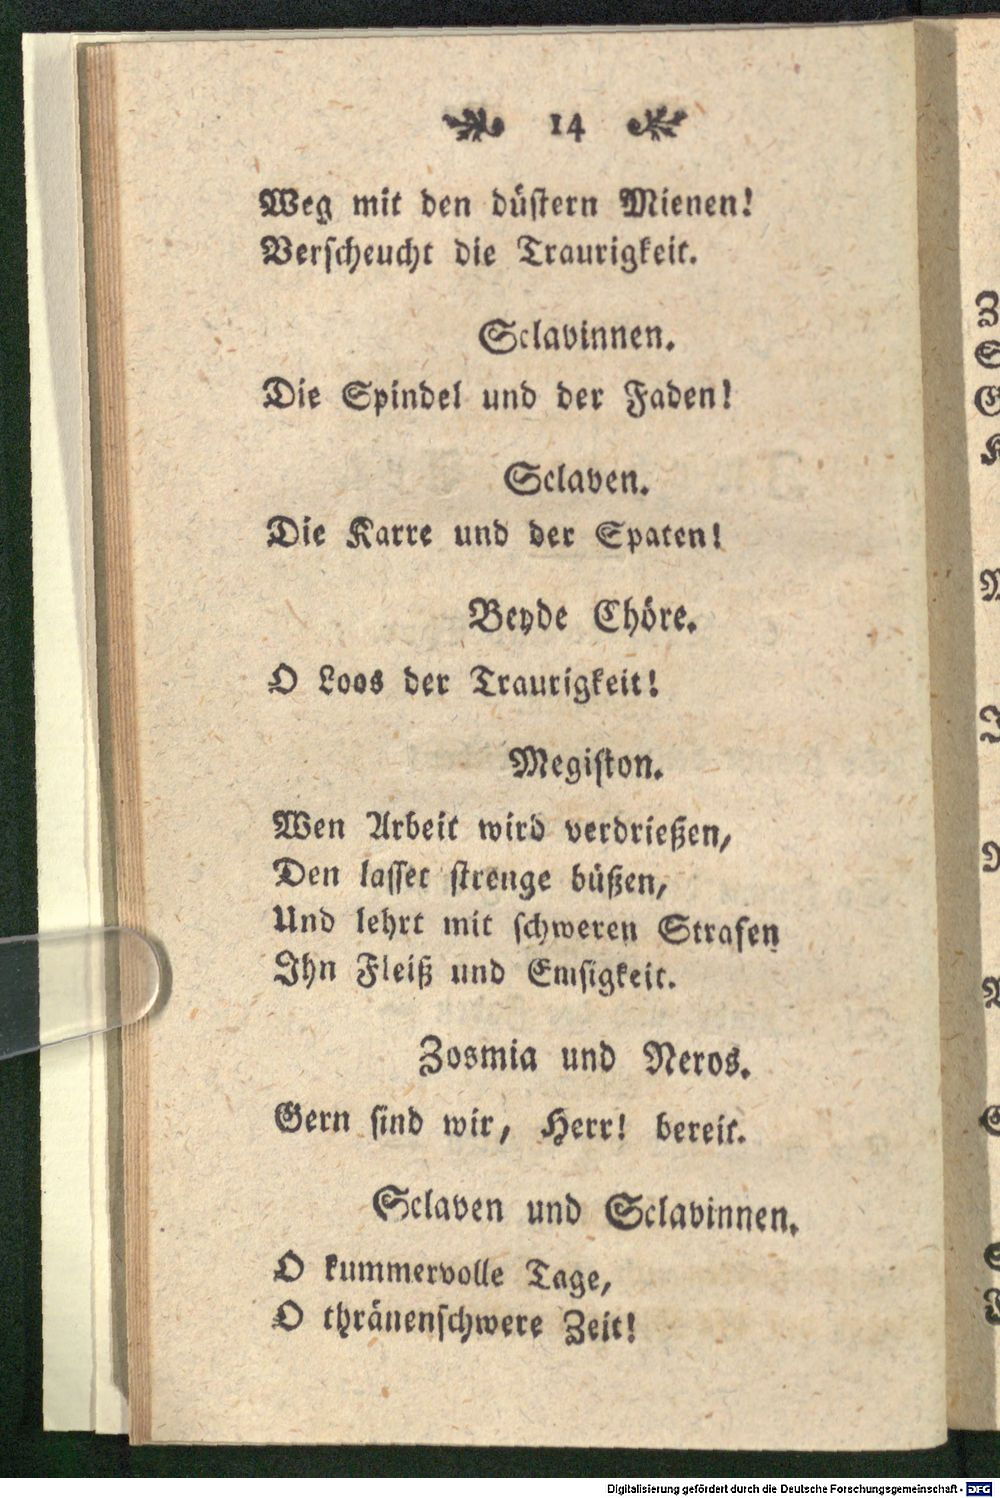 14
Weg mit den düstern Mienen!
Verscheucht die Traurigkeit.
Sclavinnen.
Die Spindel und der Faden!
Sclaven.
Die Karre und der Spaten!
Beyde Chöre.
O Loos der Traurigkeit!
Megiston.
Wen Arbeit wird verdrießen,
Den lasset strenge büßen,
Und lehrt mit schweren Strafen
Ihn Fleiß und Emsigkeit.
Zosmia und Neros.
Gern sind wir, Herr! bereit.
Sclaven und Sclavinnen.
O kummervolle Tage,
O thränenschwere Zeit!
Digitalisierung gefördert durch die Deutsche Forschungsgemeinschaft - DFG